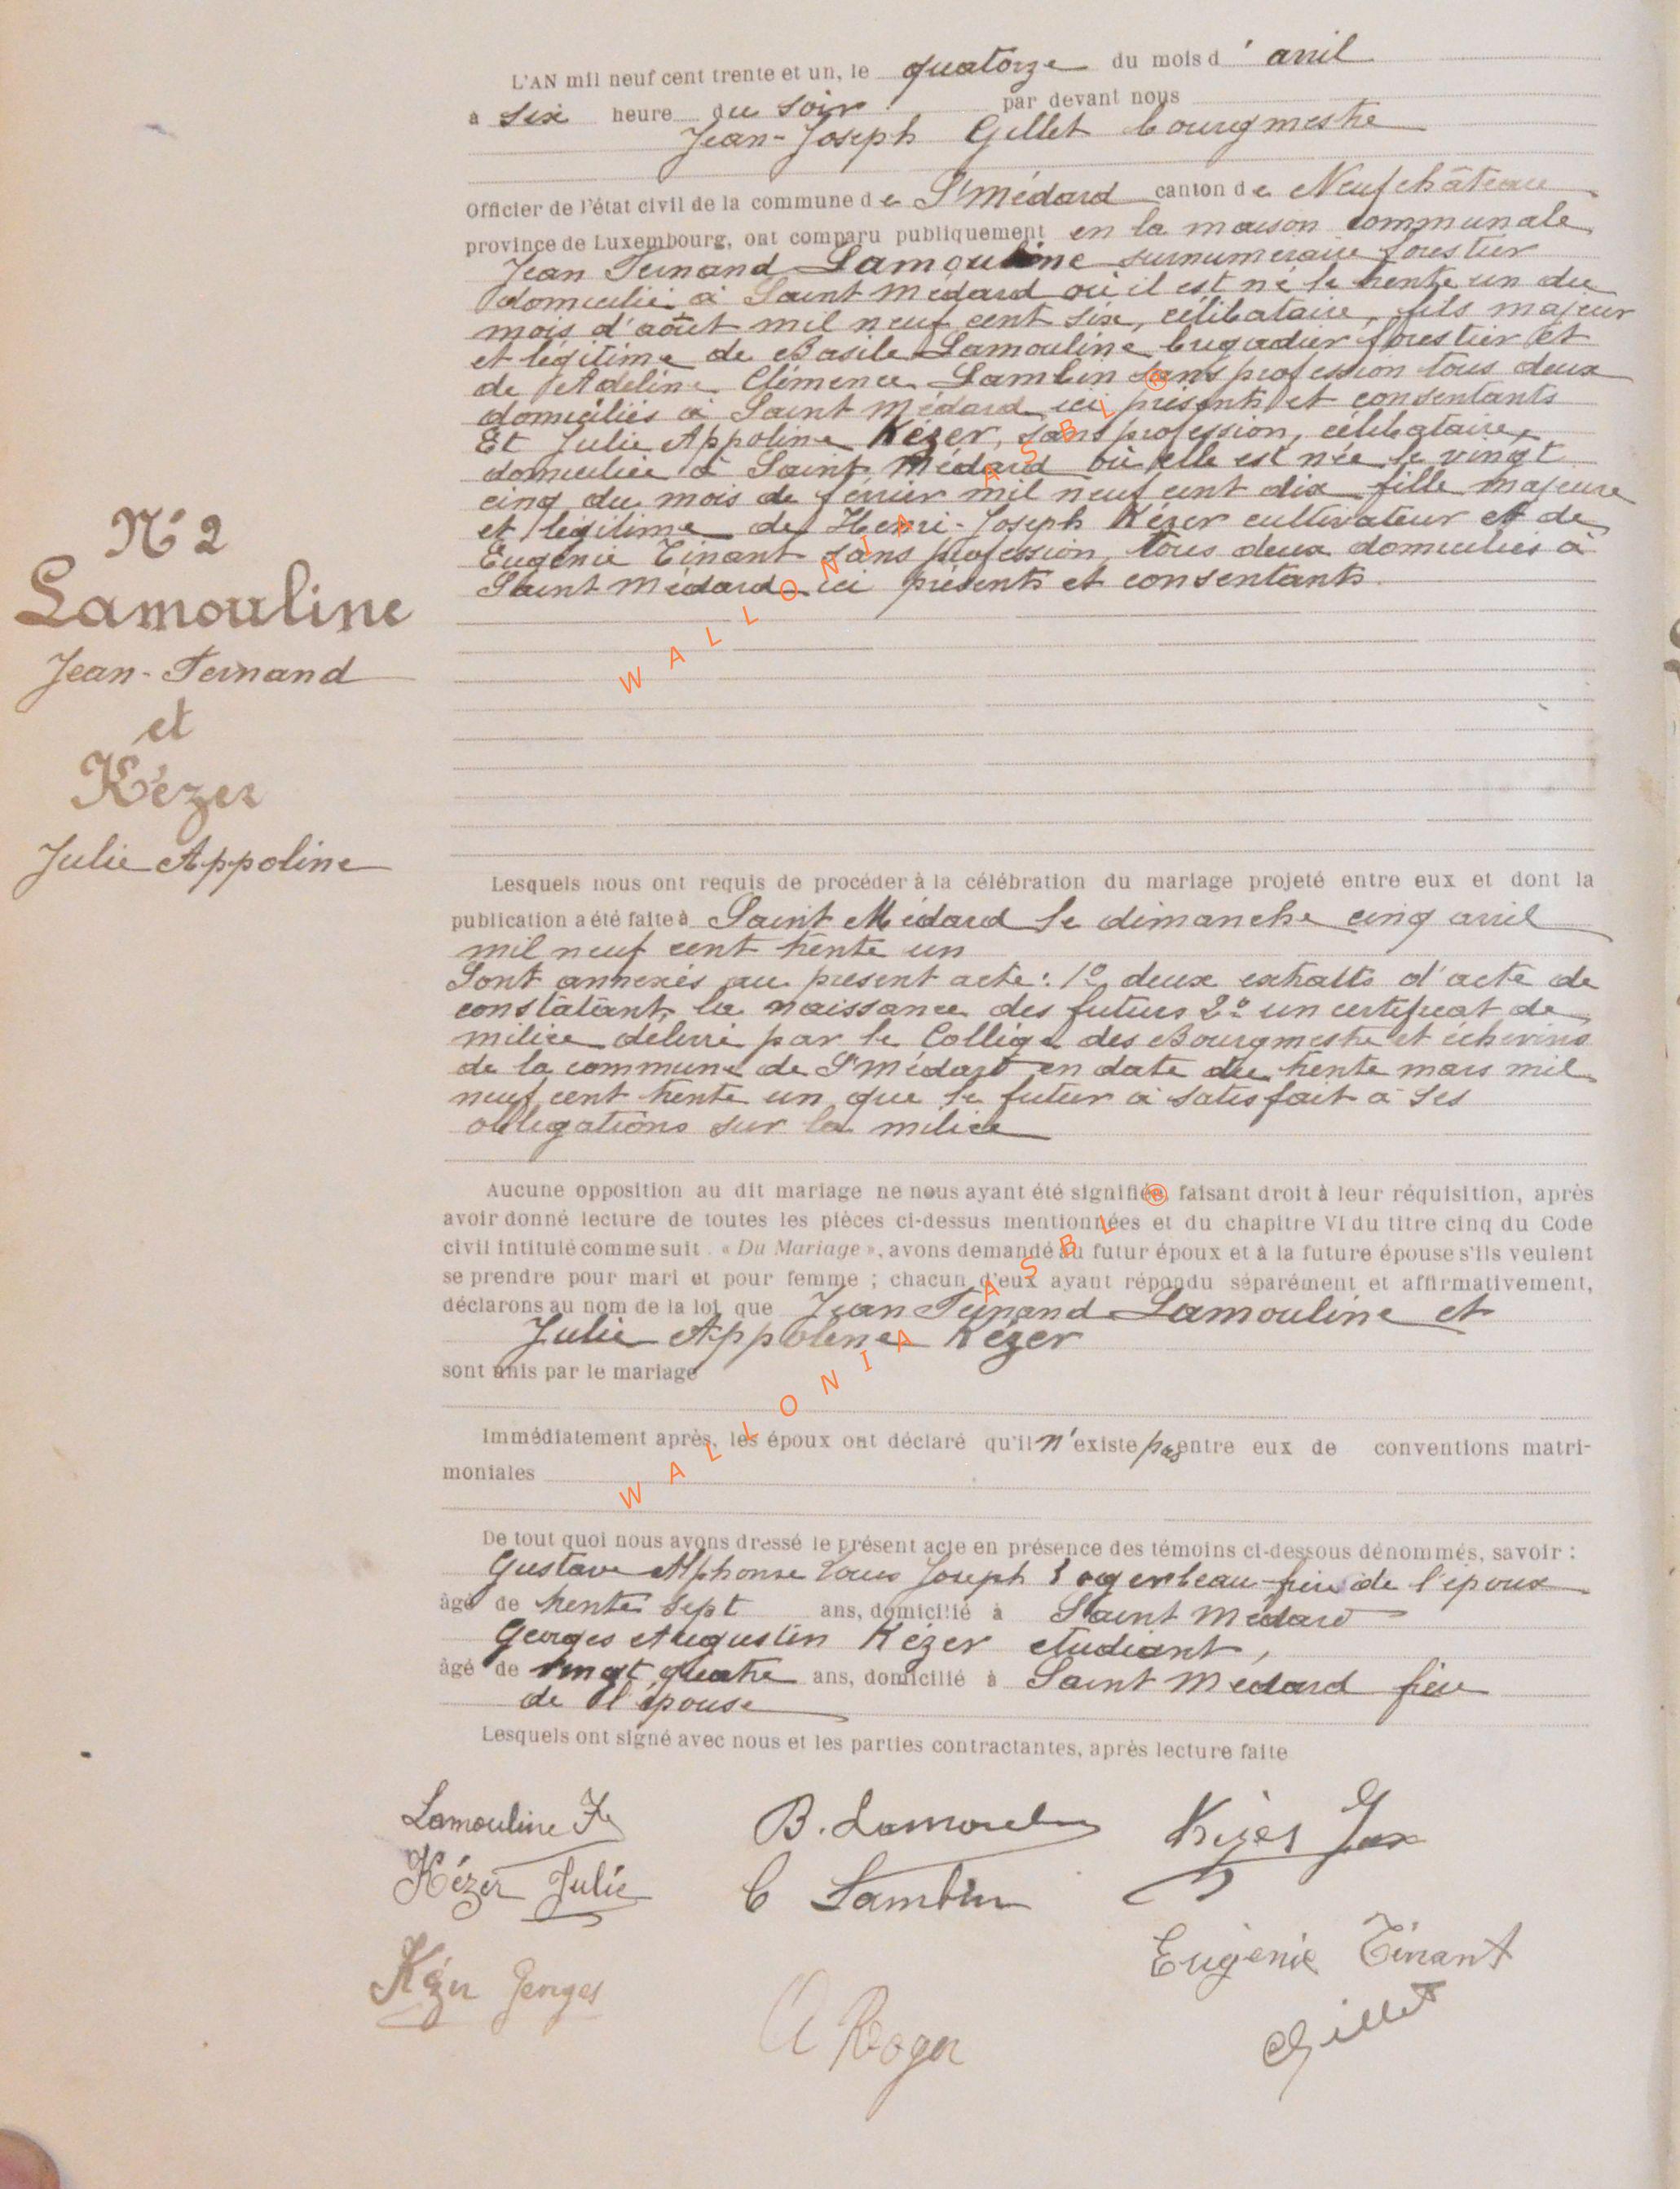 L'AN mil neuf cent trente et un, le quatorze du mois d'avril
à six heure du soir par devant nous
Jean-Joseph Gillet bourgmestre
Officier de l'état civil de la commune de St Médard canton de Neufchâteau
province de Luxembourg, ont comparu publiquement en la maison communale
Jean Fernand Lamouline surnumeraire forestier
domicilié à Saint Médard où il est né le trente un du
mois d'août mil neuf cent six, célibataire, fils majeur
et légitime de Basile Lamouline brigadier forestier et
de Adeline Clémence Lambin sans profession tous deux
domiciliés à Saint Médard ici présents et consentants
Et Julie Appoline Kézer, sans profession, célibataire,
domiciliée à Saint Médard où elle est née le vingt
cinq du mois de février mil neuf cent dix fille majeure
et légitime de Henri-Joseph Kézer cultivateur et de
Eugénie Tinant sans profession, tous deux domiciliés à
Saint Médard ici présents et consentants.
N° 2
Lamouline
Jean-Fernand
et
Kézer
Julie Appoline
Lesquels nous ont requis de procéder à la célébration du mariage projeté entre eux et dont la
publication a été faite à Saint Médard le dimanche cinq avril
mil neuf cent trente un
Sont annexés au présent acte : 1° deux extraits d'acte de
constatant la naissance des futurs 2° un certificat de
milice délivré par le Collège des Bourgmestre et échevins
de la commune de St Médard en date du trente mars mil
neuf cent trente un que le futur a satisfait à ses
obligations sur la milice
Aucune opposition au dit mariage ne nous ayant été signifiée, faisant droit à leur réquisition, après
avoir donné lecture de toutes les pièces ci-dessus mentionnées et du chapitre VI du titre cinq du Code
civil intitulé comme suit : « Du Mariage », avons demandé au futur époux et à la future épouse s'ils veulent
se prendre pour mari et pour femme ; chacun d'eux ayant répondu séparément et affirmativement,
déclarons au nom de la loi que Jean Fernand Lamouline et
Julie Appoline Kézer
sont unis par le mariage
Immédiatement après, les époux ont déclaré qu'il n'existe pas entre eux de conventions matri-
moniales
De tout quoi nous avons dressé le présent acte en présence des témoins ci-dessous dénommés, savoir :
Gustave Alphonse Louis Joseph beau-frère de l'époux
âgé de trente sept ans, domicilié à Saint Médard
Georges Augustin Kézer etudiant,
âgé de vingt quatre ans, domicilié à Saint Médard frère
de l'épouse
Lesquels ont signé avec nous et les parties contractantes, après lecture faite
Lamouline F. B. Lamouline Kézer Jos
Kézer Julie C Lambin
Eugénie Tinant
Kézer Georges Roger Gillet
WALLONIA ASBL ®
WALLONIA ASBL ®